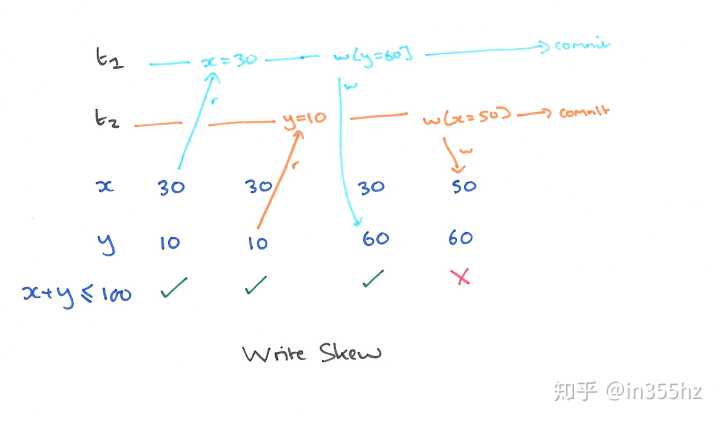 t1 x=30 w[y=60] commit
w
r
t2 y=10 w(x=50) commit
r w
x 30 30 30 50
y 10 10 60 60
x+y≤100 ✓ ✓ ✓ ✗
Write Skew
知乎 @in355hz